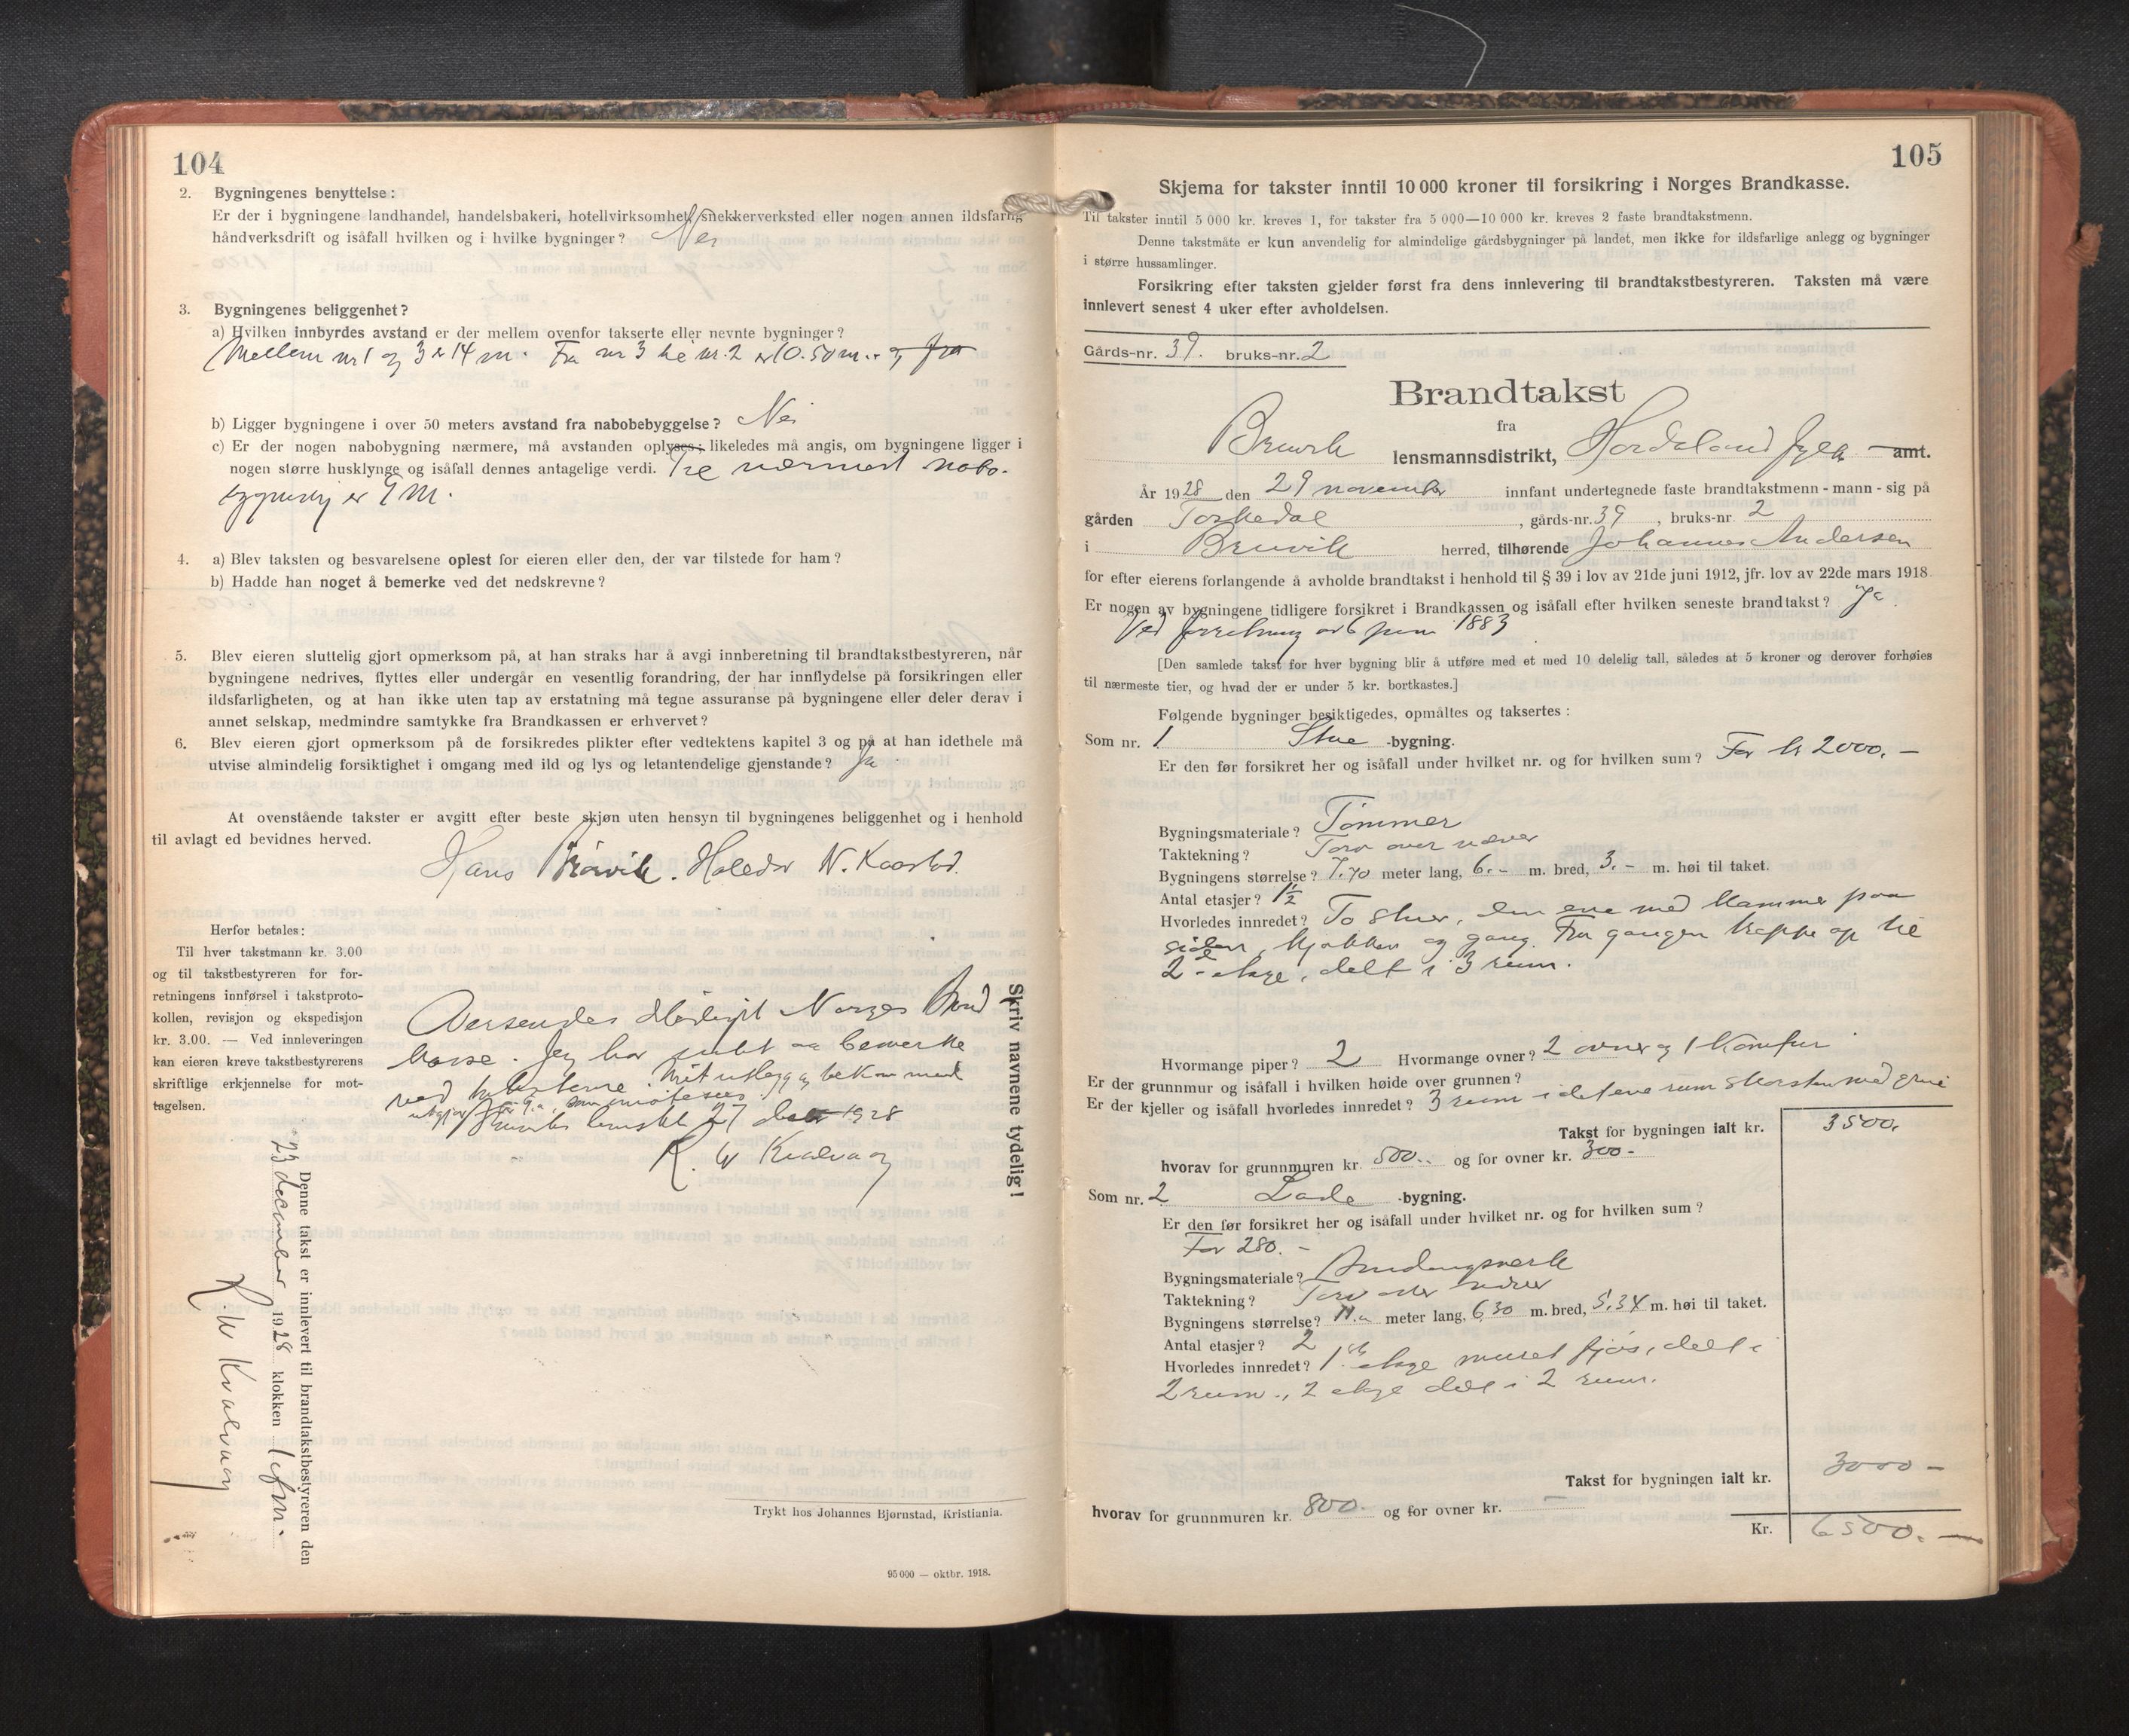 104
2. Bygningenes benyttelse:
Er der i bygningene landhandel, handelsbakeri, hotellvirksomhet, snekkerverksted eller nogen annen ildsfarlig
håndverksdrift og isåfall hvilken og i hvilke bygninger? Nei
3. Bygningenes beliggenhet?
a) Hvilken innbyrdes avstand er der mellem ovenfor takserte eller nevnte bygninger?
Mellem nr 1 og 3 er 14 m. Fra nr 3 til nr. 2 er 10.50 m. og fra
b) Ligger bygningene i over 50 meters avstand fra nabobebyggelse? Nei
c) Er der nogen nabobygning nærmere, må avstanden oplyses; likeledes må angis, om bygningene ligger i
nogen større husklynge og isåfall dennes antagelige verdi. Til nærmest nabo-
bygning er 9 m.
4. a) Blev taksten og besvarelsene oplest for eieren eller den, der var tilstede for ham?
b) Hadde han noget å bemerke ved det nedskrevne?
5. Blev eieren sluttelig gjort opmerksom på, at han straks har å avgi innberetning til brandtakstbestyreren, når
bygningene nedrives, flyttes eller undergår en vesentlig forandring, der har innflydelse på forsikringen eller
ildsfarligheten, og at han ikke uten tap av erstatning må tegne assuranse på bygningene eller deler derav i
annet selskap, medmindre samtykke fra Brandkassen er erhvervet?
6. Blev eieren gjort opmerksom på de forsikredes plikter efter vedtektens kapitel 3 og på at han idethele må
utvise almindelig forsiktighet i omgang med ild og lys og letantendelige gjenstande? Ja
At ovenstående takster er avgitt efter beste skjøn uten hensyn til bygningenes beliggenhet og i henhold
til avlagt ed bevidnes herved.
Hans N.
Herfor betales:
Til hver takstmann kr. 3.00
og til takstbestyreren for for-
retningens innførsel i takstproto-
kollen, revisjon og ekspedisjon
kr. 3.00. — Ved innleveringen
kan eieren kreve takstbestyrerens
skriftlige erkjennelse for mot-
tagelsen.
Oversendes Norges Brand
kasse. Jeg har intet aa bemerke
ved taksterne. Mit utlegg
27 1928
Kvalvaag
Skriv navnene tydelig!
Denne takst er innlevert til brandtakstbestyreren den
23 december 1928 klokken 1 efm.
Kvalvaag
Trykt hos Johannes Bjørnstad, Kristiania.
95 000 — oktbr. 1918.
105
Skjema for takster inntil 10 000 kroner til forsikring i Norges Brandkasse.
Til takster inntil 5 000 kr. kreves 1, for takster fra 5 000—10 000 kr. kreves 2 faste brandtakstmenn.
Denne takstmåte er kun anvendelig for almindelige gårdsbygninger på landet, men ikke for ildsfarlige anlegg og bygninger
i større hussamlinger.
Forsikring efter taksten gjelder først fra dens innlevering til brandtakstbestyreren. Taksten må være
innlevert senest 4 uker efter avholdelsen.
Gårds-nr. 39. bruks-nr. 2
Brandtakst
fra
Bruvik lensmannsdistrikt, Hordaland fylke amt.
År 1928 den 29 november innfant undertegnede faste brandtakstmenn - mann - sig på
gården , gårds-nr. 39, bruks-nr 2
i Bruvik herred, tilhørende Johannes Andersen
for efter eierens forlangende å avholde brandtakst i henhold til § 39 i lov av 21de juni 1912, jfr. lov av 22de mars 1918.
Er nogen av bygningene tidligere forsikret i Brandkassen og isåfall efter hvilken seneste brandtakst? Ja
Ved forretning av 6 juni 1883
[Den samlede takst for hver bygning blir å utføre med et med 10 delelig tall, således at 5 kroner og derover forhøies
til nærmeste tier, og hvad der er under 5 kr. bortkastes.]
Følgende bygninger besiktigedes, opmåltes og taksertes:
Som nr. 1 Stue -bygning.
Er den før forsikret her og isåfall under hvilket nr. og for hvilken sum? For kr 2000.—
Bygningsmateriale? Tømmer
Taktekning? Torv over næver
Bygningens størrelse? 7.70 meter lang, 6.- m. bred, 3.- m. høi til taket.
Antal etasjer? 1½
Hvorledes innredet? To stuer, den ene med kammer paa
siden, kjøkken og gang. Fra gangen trappe op til
2- etage, delt i 3 rum.
Hvormange piper? 2 Hvormange ovner? 2 ovner og 1 komfur
Er der grunnmur og isåfall i hvilken høide over grunnen?
Er der kjeller og isåfall hvorledes innredet? 3 rum i det ene rum skorsten med grue
Takst for bygningen ialt kr. 3500.
hvorav for grunnmuren kr. 500.- og for ovner kr. 300-
Som nr. 2 Lade -bygning.
Er den før forsikret her og isåfall under hvilket nr. og for hvilken sum?
For 280.-
Bygningsmateriale? Bindingsverk
Taktekning? Torv over næver
Bygningens størrelse? 11.- meter lang, 6.30 m. bred, 5.34 m. høi til taket.
Antal etasjer? 2
Hvorledes innredet? 1ste etage muret fjøs, delt i
2 rum., 2 etage delt i 2 rum.
Takst for bygningen ialt kr. 3000-
hvorav for grunnmuren kr. 800. og for ovner kr. —
Kr. 6500.—